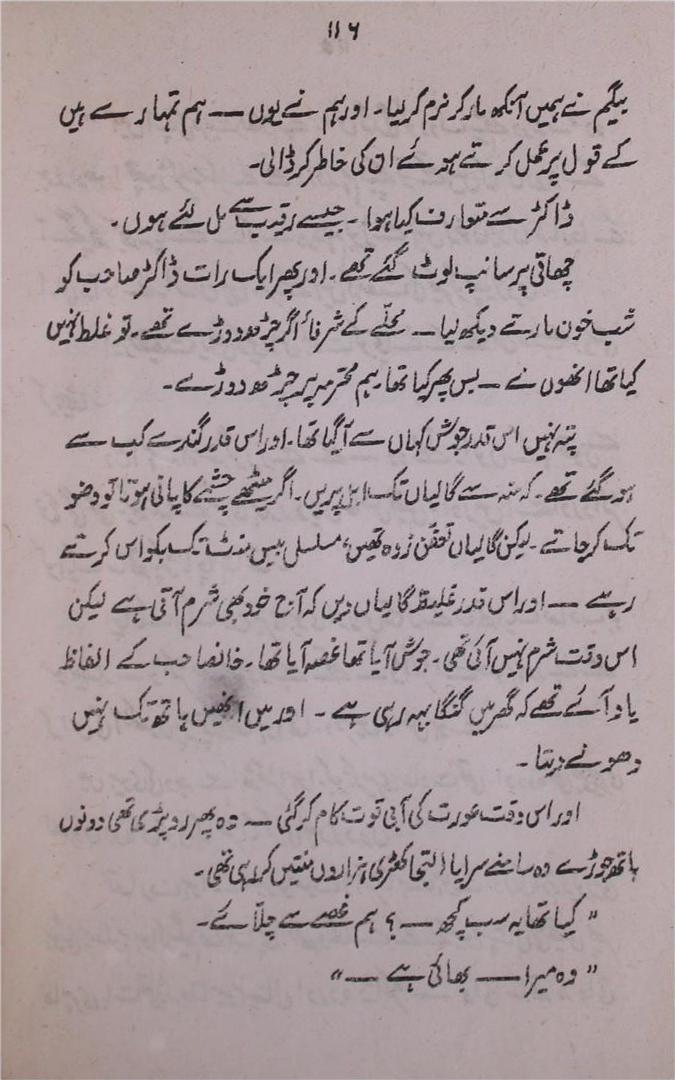 ۱۱۶
بیگم نے ہمیں آنکھ مار کر نرم کر لیا۔ اور ہم نے یوں — ہم تمہارے ہیں
کے قول پر عمل کرتے ہوئے ان کی خاطر کر ڈالی۔
ڈاکٹر سے متعارف کیا ہوا۔ جیسے رقیب سے مل لئے ہوں۔
چھاتی پر سانپ لوٹ گئے تھے۔ اور پھر ایک رات ڈاکٹر صاحب کو
شب خون مارتے دیکھ لیا — محلّے کے شرفاء اگر چڑھ دوڑے تھے۔ تو غلط نہیں
کیا تھا انھوں نے — بس پھر کیا تھا ہم محترمہ پر چڑھ دوڑے۔
پتہ نہیں اس قدر جوش کہاں سے آ گیا تھا۔ اور اس قدر گندے کب سے
ہو گئے تھے۔ کہ منہ سے گالیاں تک ابل پڑیں۔ اگر میٹھے چشمے کا پانی ہوتا تو وضو
تک کر جاتے۔ لیکن گالیاں تعفّن زدہ تھیں، مسلسل بیس منٹ تک بکواس کرتے
رہے — اور اس قدر غلیظ گالیاں دیں کہ آج خود بھی شرم آتی ہے لیکن
اس وقت شرم نہیں آئی تھی۔ جوش آیا تھا غصہ آیا تھا۔ خانصاحب کے الفاظ
یاد آئے تھے کہ گھر میں گنگا بہہ رہی ہے۔ اور میں انھیں ہاتھ تک نہیں
دھونے دیتا۔
اور اس وقت عورت کی آبی قوت کام کر گئی — وہ پھر رو پڑی تھی دونوں
ہاتھ جوڑے وہ سامنے سراپا التجا کھڑی ہزاروں منتیں کر رہی تھی۔
"کیا تھا یہ سب کچھ —؟ ہم غصے سے چلّائے۔
"وہ میرا — بھائی ہے —"